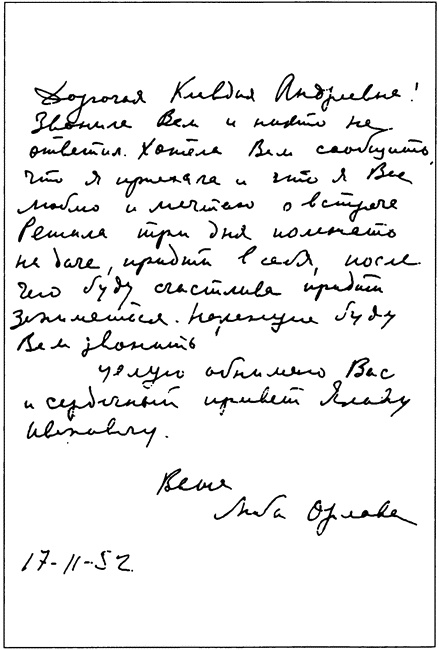 Дорогая Клавдия Андреевна!
Звонила Вам и никто не
ответил. Хотела Вам сообщить,
что я приехала и что я Вас
люблю и мечтаю о встрече
Решила три дня полежать
на даче, придти в себя, после
чего буду счастлива придти
заниматься. Накануне буду
Вам звонить
Целую обнимаю Вас
и сердечный привет
Ивановичу.
Ваша
Люба Орлова
17-11-52